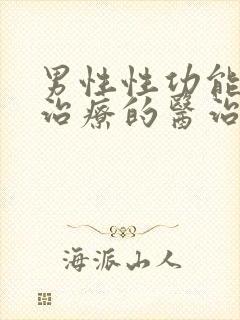 男性性功能
治療的醫治
海派山人